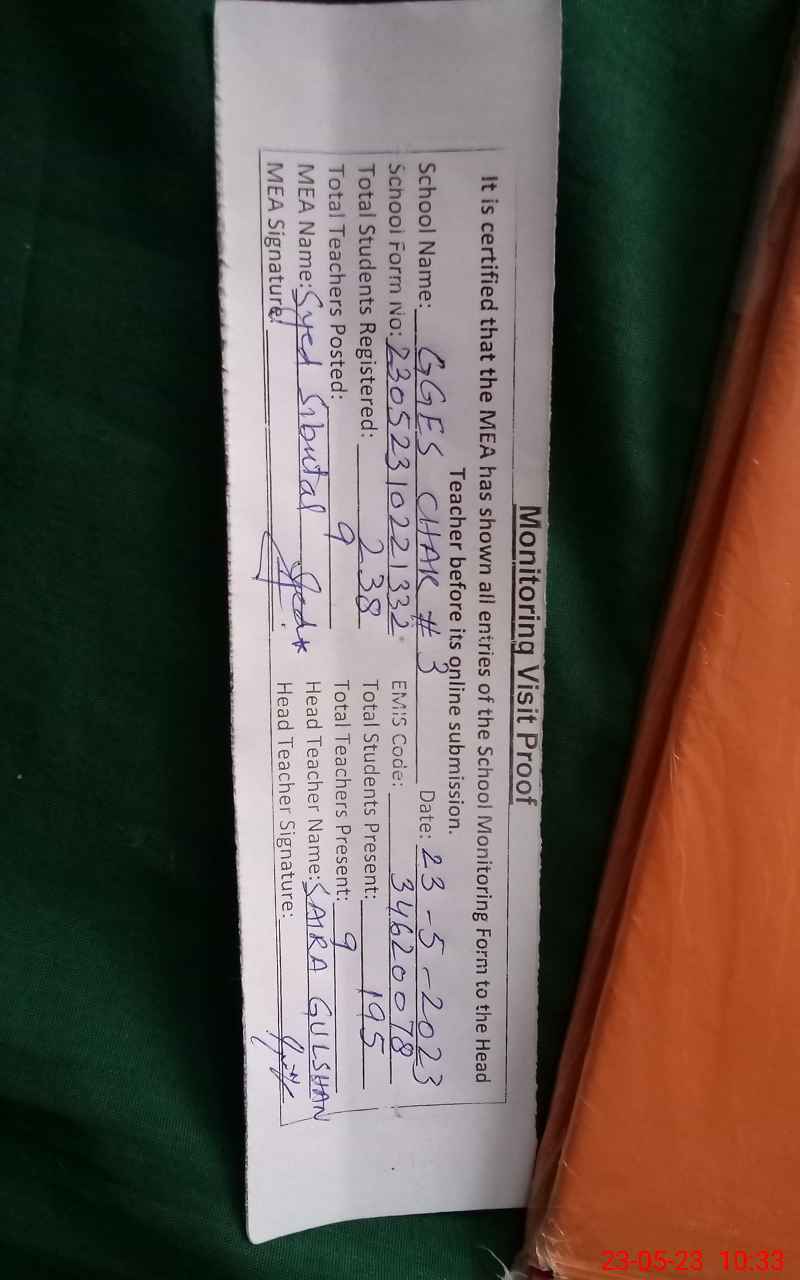 Monitoring Visit Proof
It is certified that the MEA has shown all entries of the School Monitoring Form to the Head
Teacher before its online submission.
School Name: GGES CHAK # 3 Date: 23-5-2023
School Form No: 23052310221332 EMIS Code: 34620078
Total Students Registered: 238 Total Students Present: 195
Total Teachers Posted: 9 Total Teachers Present: 9
MEA Name: Syed Sibutal Head Teacher Name: SAIRA GULSHAN
MEA Signature: Head Teacher Signature:
23-05-23 10:33